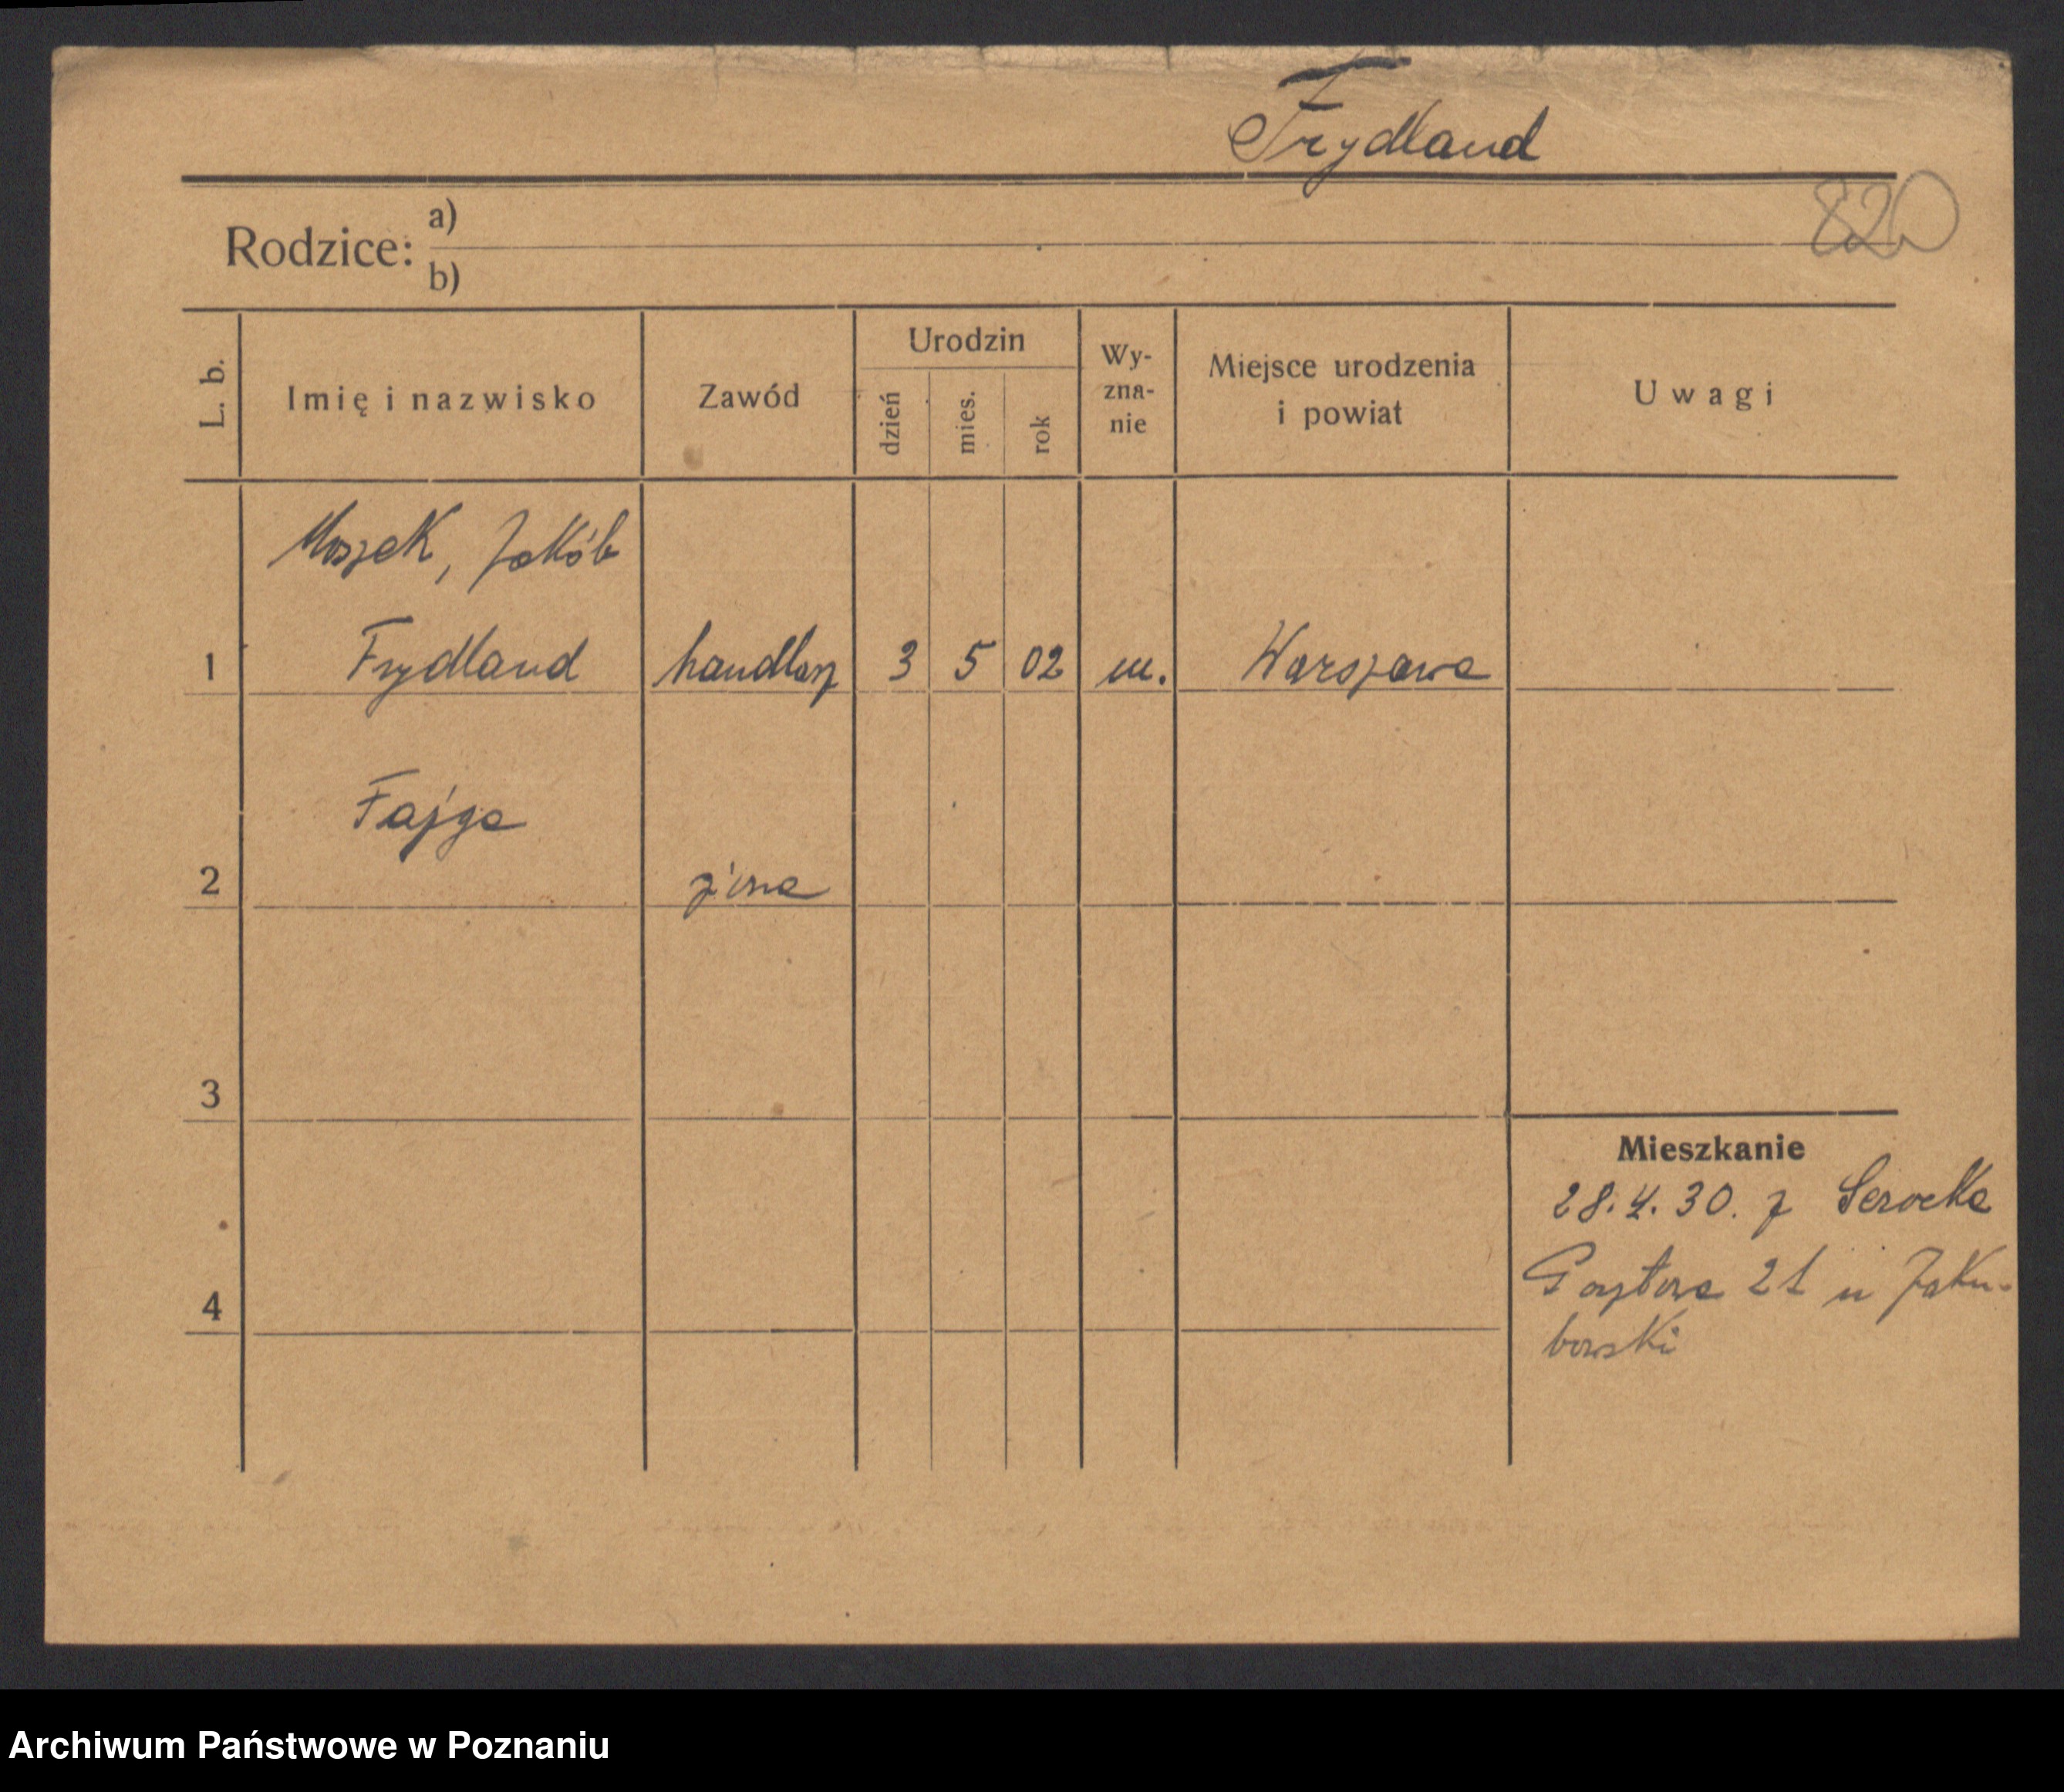 Frydland
820
Rodzice:
a)
b)
L. b.
Imię i nazwisko
Zawód
Urodzin
dzień
mies.
rok
Wy-
zna-
nie
Miejsce urodzenia
i powiat
Uwagi
Moszek, Jakób
1 Frydland handlarz 3 5 02 m. Warszawa
Fajga
2 żona
3
Mieszkanie
28.4.30. z Serocka
21 u Jaku-
4
bowski
Archiwum Państwowe w Poznaniu